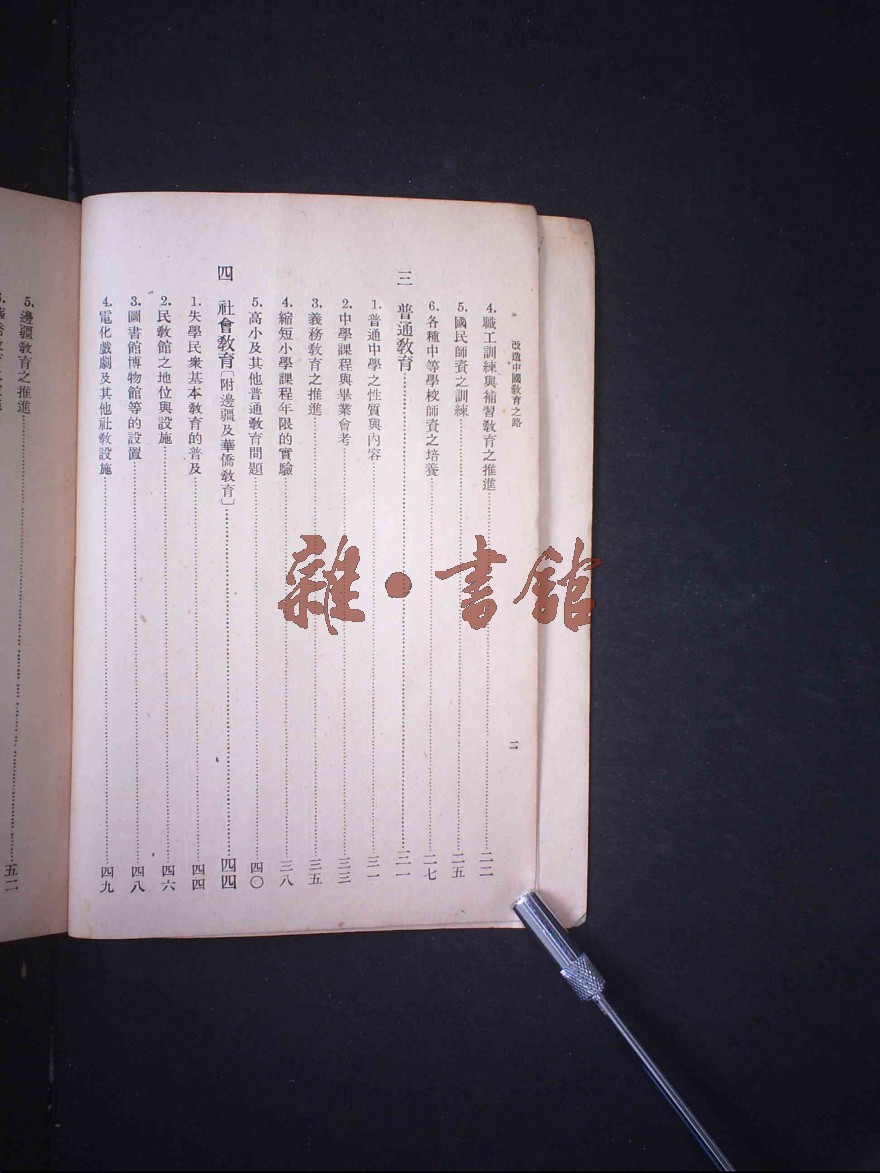 改造中國教育之路
二
4. 職工訓練與補習教育之推進……二二
5. 國民師資之訓練……二五
6. 各種中等學校師資之培養……二七
三 普通教育……三一
1. 普通中學之性質與內容……三一
2. 中學課程與畢業會考……三三
3. 義務教育之推進……三五
4. 縮短小學課程年限的實驗……三八
5. 高小及其他普通教育問題……四〇
四 社會教育〔附邊疆及華僑教育〕……四四
1. 失學民衆基本教育的普及……四四
2. 民教館之地位與設施……四六
3. 圖書館博物館等的設置……四八
4. 電化戲劇及其他社教設施……四九
5. 邊疆教育之推進……五二
雜·書館